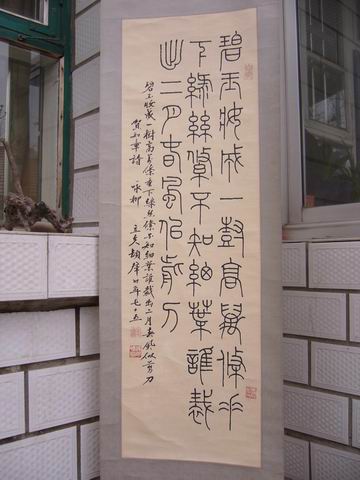 碧玉妝成一樹高萬條垂
下綠絲絛不知細葉誰裁
出二月春風似剪刀
碧玉妝成一樹高萬條垂下綠絲絛不知細葉誰裁出二月春風似剪刀
賀知章詩 詠柳
年七十五